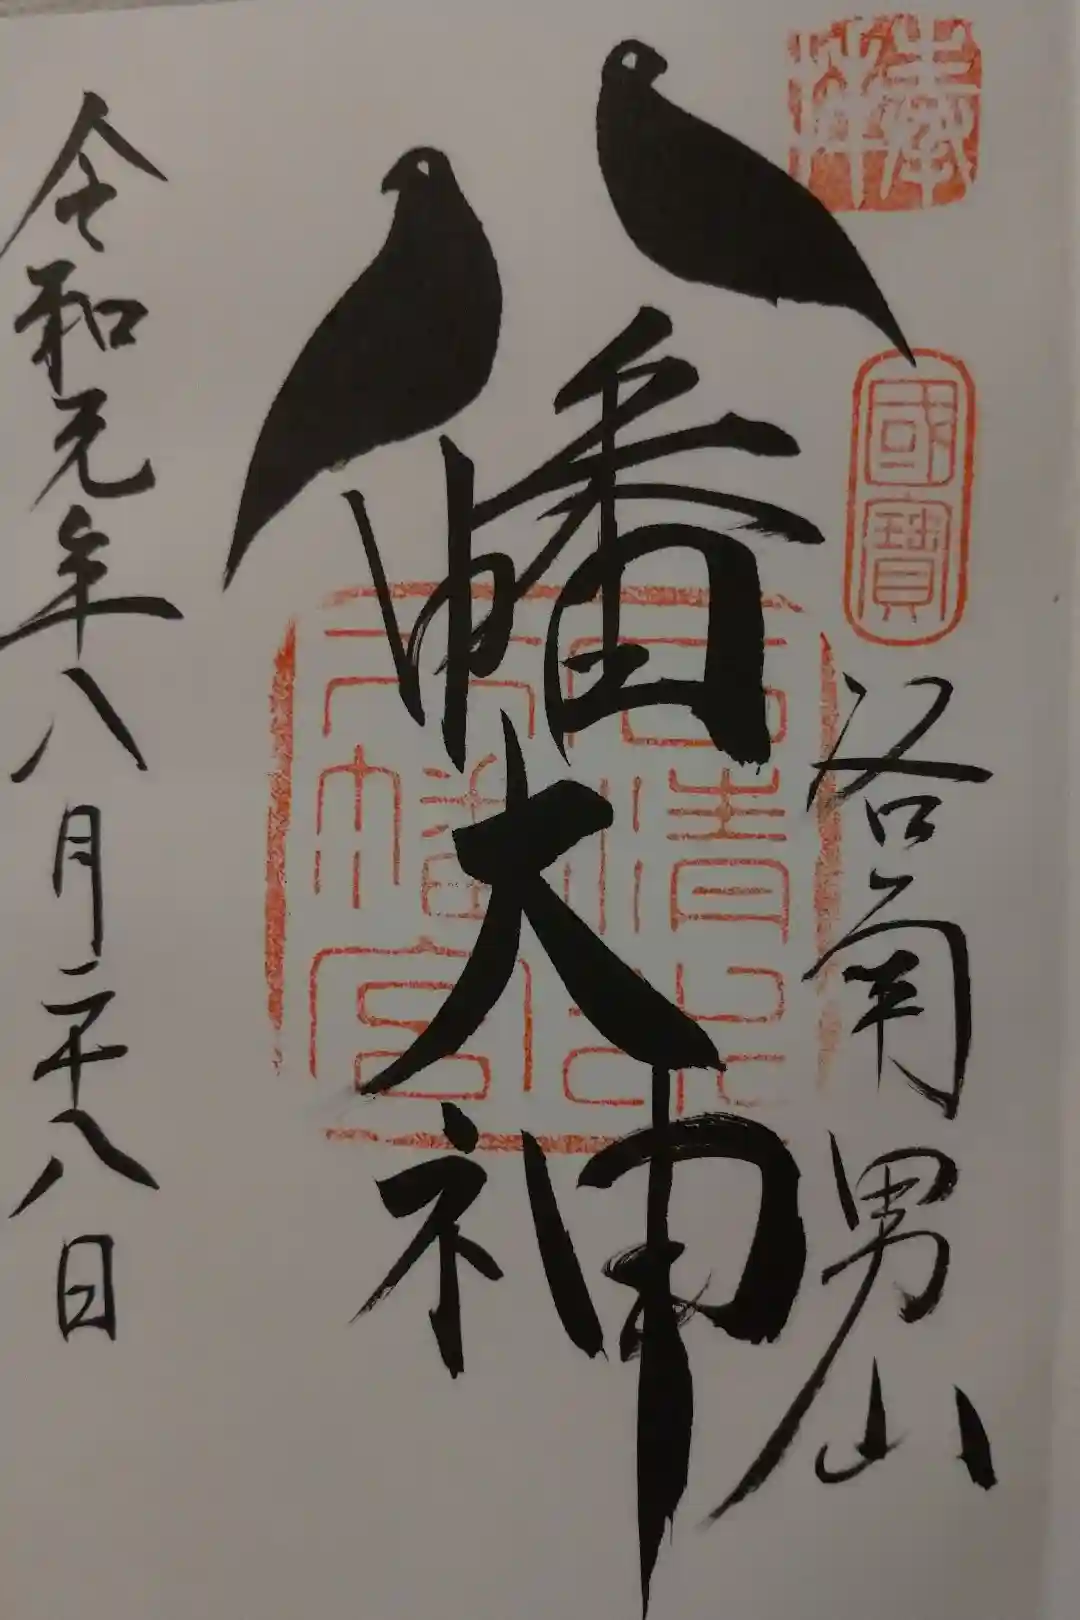 奉拝
國寶
洛南男山
八幡大神
石清水
八幡宮
令和元年八月二十八日